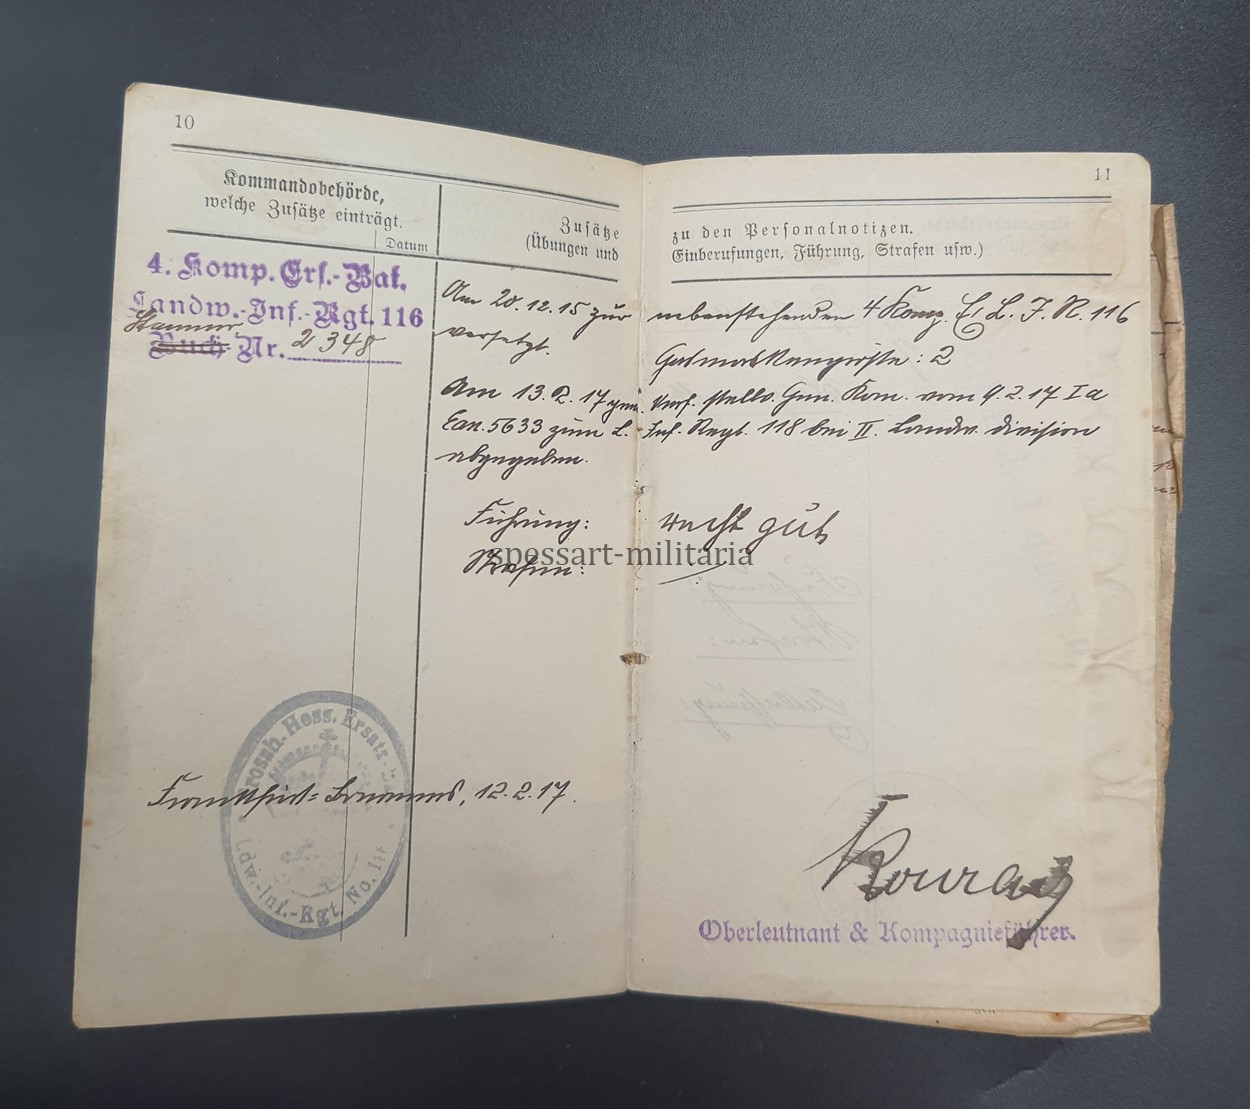 10
Kommandobehörde,
welche Zusätze einträgt.
Datum
Zusätze
(Übungen und
4. Komp. Ers.-Bat.
Landw.-Inf.-Rgt. 116
Stamm
Buch Nr. 2348
Am 20.12.15 zur
versetzt.
Am 13.2.17 gem.
5633 zum L.
abgegeben.
Führung:
Strafen:
Grossh. Hess. Ersatz-
Ldw.-Inf.-Rgt. No. 116
Frankfurt 12.2.17.
11
zu den Personalnotizen.
Einberufungen, Führung, Strafen usw.)
nebenstehenden 4 Komp. E. L. J. R. 116
Gasmaskengröße: 2
Verf. stellv. Gen. Kom. vom 9.2.17 Ia
Inf. Regt. 118 bei II. Landw. Division
recht gut
—
Konrad
Oberleutnant & Kompagnieführer.
spessart-militaria